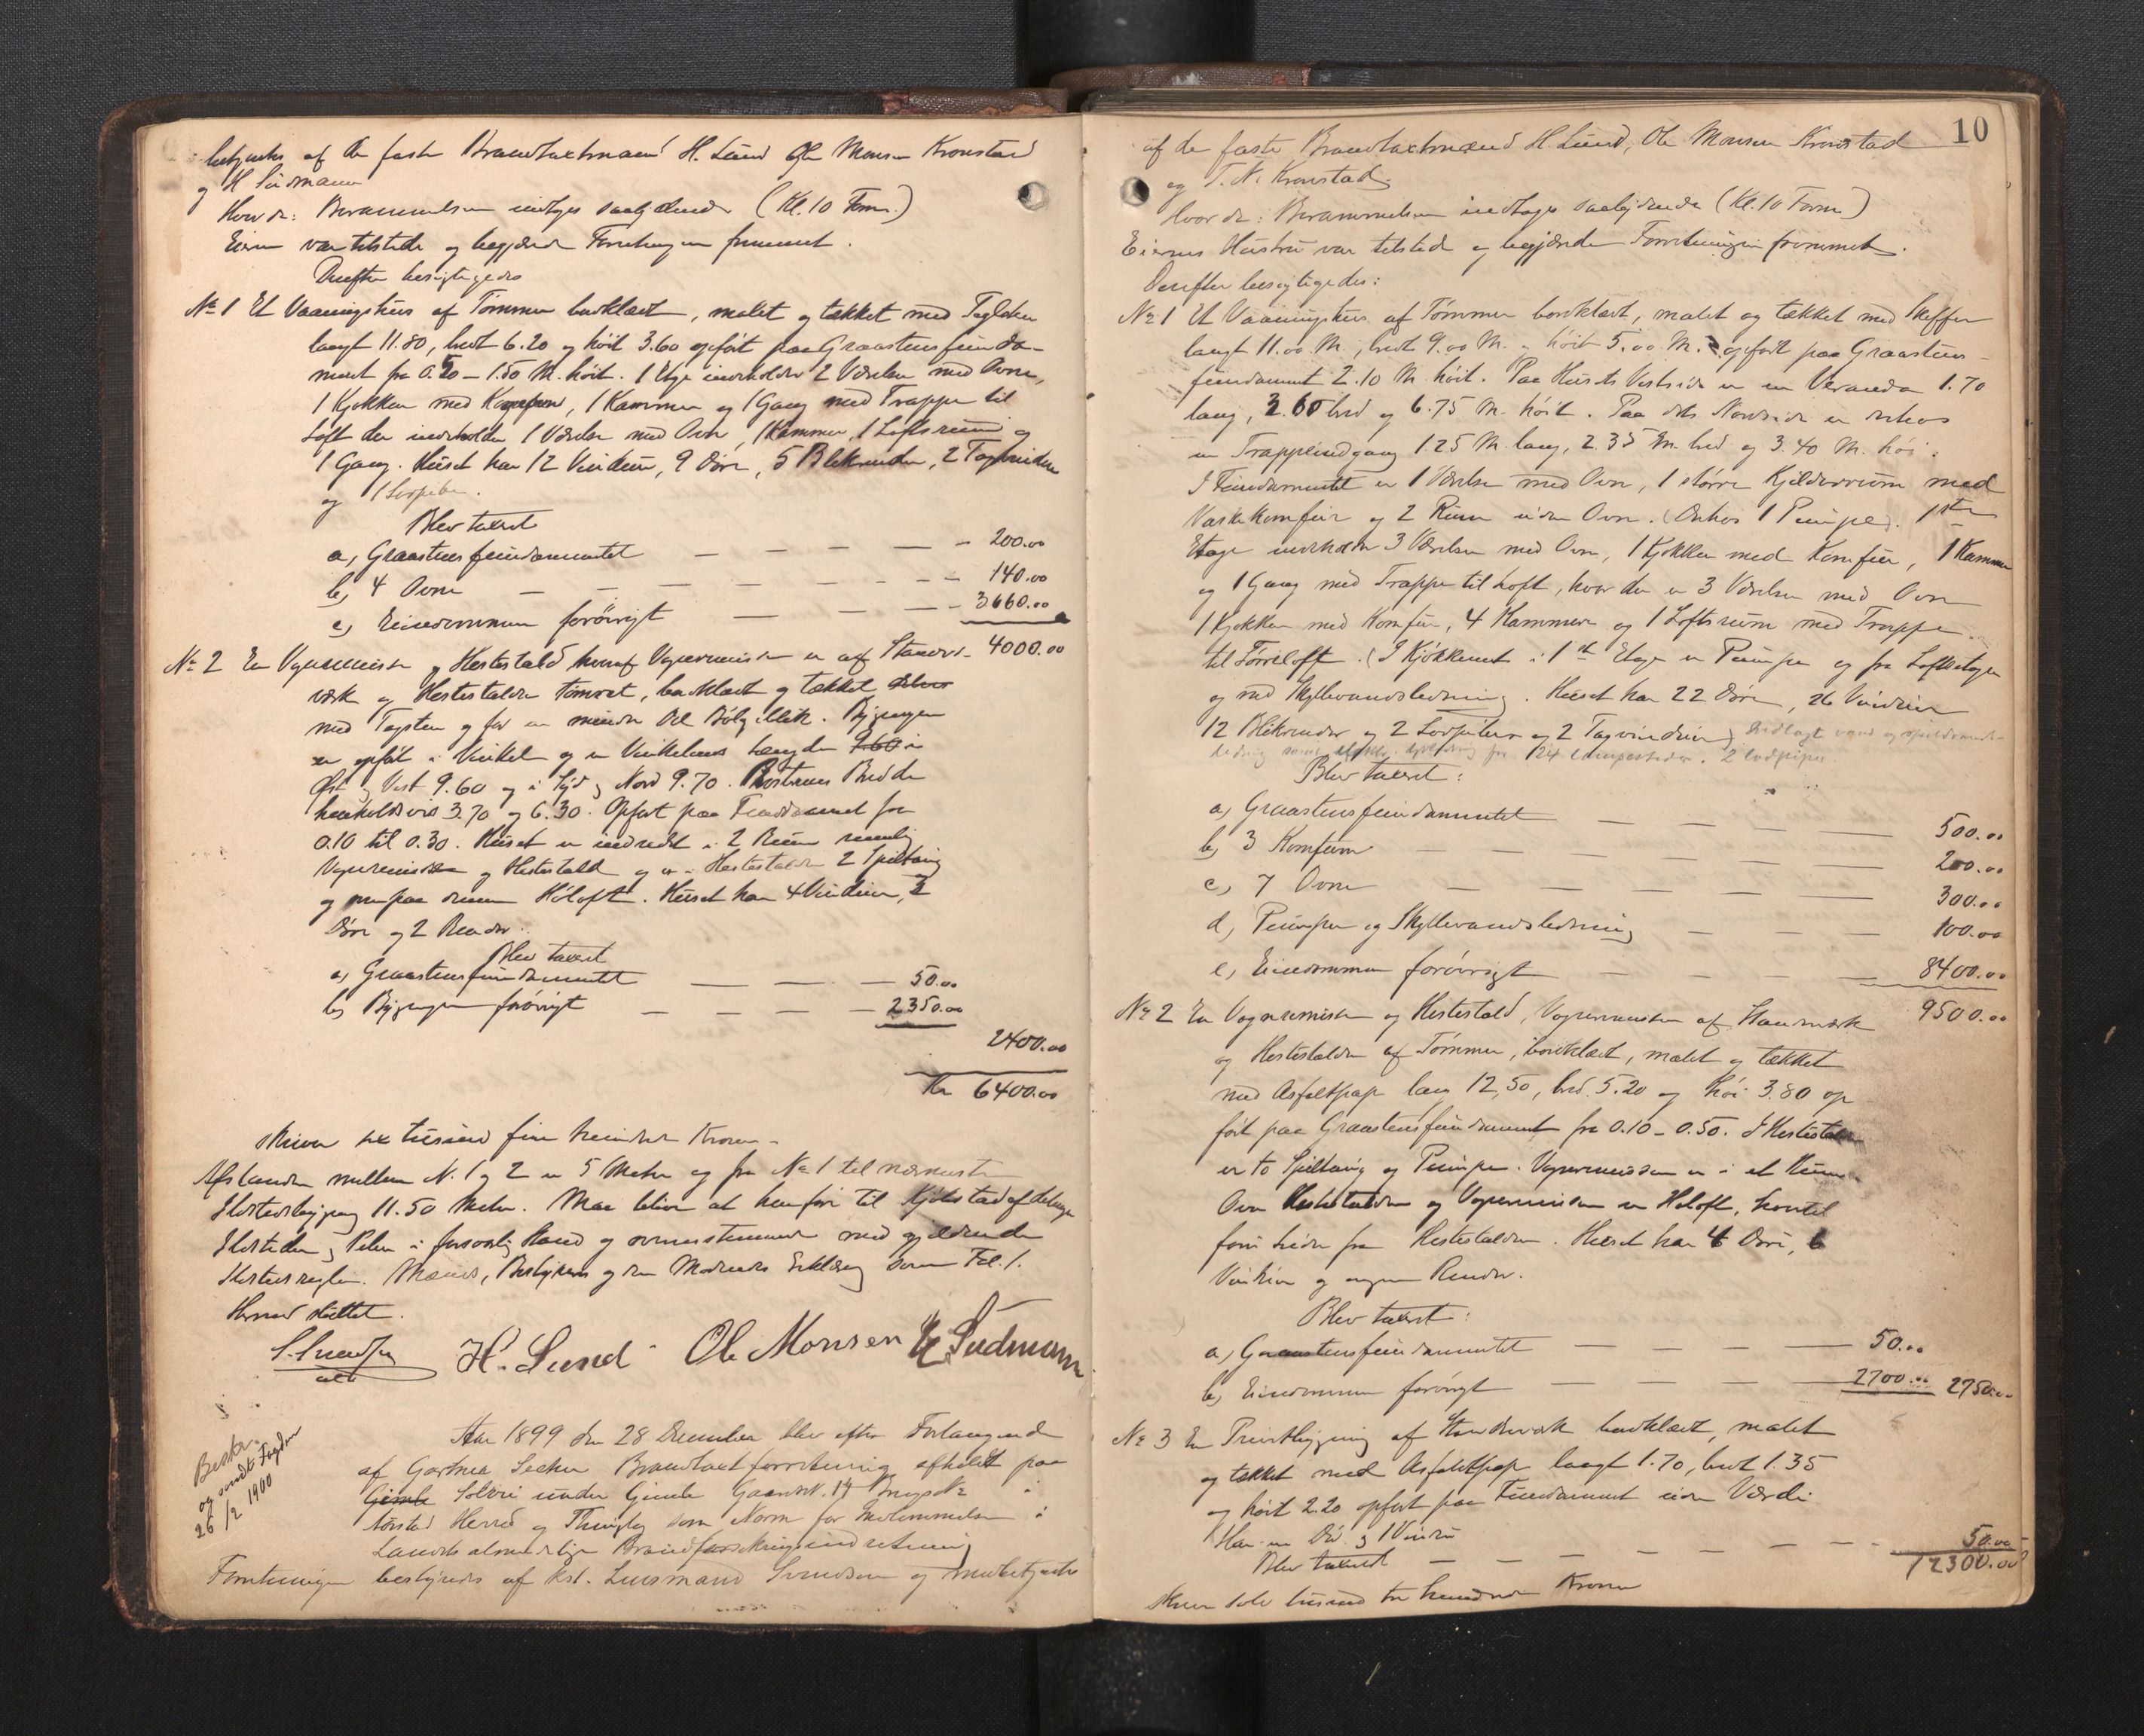 af de faste Brandtaxtmænd H. Lund Ole Monsen Kronstad
og H Sudmann
Hvor da: Berammelsen indtages saalydende (Kl. 10 Form.)
Eieren var tilstede og begjærede Forretningen fremmet.
Derefter besigtigedes
No 1 Et Vaaningshus af Tømmer bordklædt, malet og tækket med Taglsten
langt 11.80, bredt 6.20 og høit 3.60 opført paa Graastensfunda-
ment fra 0.50 – 1.50 M. høit. 1 Etage indeholder 2 Værelser med Ovne,
1 Kjøkken med Komfur, 1 Kammer og 1 Gang med Trappe til
Loft der indeholder 1 Værelse med Ovn, 1 Kammer, 1 Loftsrum og
1 Gang. Huset har 12 Vinduer, 9 Døre, 5 Blikrender, 2 Tagvinduer
og 1
Blev taxert
a, Graastensfundamentet — 200.00
b, 4 Ovne — 140.00
c, Eiendommen forøvrigt — 3660.00
4000.00
No 2 En Vognremise og Hestestald hvoraf Vognremisen er af Stænder-
værk og Hestestalden tømret, bordklædt og tækket
med Tagsten og for en mindre Del Bølgeblik. Bygningen
er opført i Vinkel og er Vinkelens Længder 9.60 i
Øst og Vest 9.60 og i Syd og Nord 9.70. Bredde
henholdsvis 3.70 og 6.30. Opført paa Fundament fra
0.10 til 0.30. Huset er indredet i 2 Rum nemlig
Vognremise og Hestestald og er i Hestestalden 2 Spiltaug
og ovenpaa denne Høloft. Huset har 4 Vinduer, 3
Døre og 2 Render.
Blev taxert
a, Graastensfundamentet — 50.00
b, Bygningen forøvrigt — 2350.00
2400.00
Kr 6400.00
skriver sex tusind fire hundrede Kroner.
Afstanden mellem N. 1 og 2 er 5 Meter og fra No 1 til nærmeste
Ildstedsbygning 11.50 Meter. Maa blive at henføre til Kjøbstadafdelingen
Ildsteder og Piber i forsvarlig Stand og overensstemmende med gjældende
Mænds, Bestyrers og den Mødendes Erklæring som Fol. 1.
Hermed sluttet.
H. Lund Ole Monsen H Sudmann
Bestr.
og sendt Fogden
26/2 1900
Aar 1899 den 28 December blev efter Forlangende
af Gartner Secher Brandtaxtforretning afholdt paa
Gimle Solbri under Gimle Gaardsn. 14 Brugs No i
Aarstad Herred og Thinglag som Norm for Medlemmelse i
Landets almindelige Brandforsikringsindretning
Forretningen bestyredes af Kst. Lensmand Svendsen og medbetjentes
10
af de faste Brandtaxtmænd H Lund, Ole Monsen Kronstad
og T. N. Kronstad.
Hvor da: Berammelsen indtages saalydende (Kl. 10 Form)
Eierens Hustru var tilstede og begjærede Forretningen fremmet.
Derefter besigtigedes:
No 1 Et Vaaningshus af Tømmer bordklædt, malet og tækket med Skiffer
langt 11.00 M., bredt 9.00 M. høit 5.00 M. opført paa Graastens-
fundament 2.10 M. høit. Paa Husets Vestside er en Veranda 1.70
lang, 2.60 bred og 6.75 M. høit. Paa dets Nordside er
en Trappeindgang 1.25 M. lang, 2.35 M. bred og 3.40 M. høi.
I Fundamentet er 1 Værelse med Ovn, 1 større Kjælderrum med
Vaskekomfur og 2 Rum uden Ovn. 1 Pumpe. 1ste
Etage indeholder 3 Værelser med Ovn, 1 Kjøkken med Komfur, 1 Kammer
og 1 Gang med Trappe til Loft, hvor der er 3 Værelser med Ovn
1 Kjøkken med Komfur, 4 Kammere og 1 Loftsrum med Trappe
til Tørreloft. (I Kjøkkenet i 1ste Etage er Pumpe og fra Loftsetagen
og ned Skyllevandsledning. Huset har 22 Døre, 26 Vinduer
12 Blikrender og 2 og 2 Tagvinduer,
Blev taxert:
a, Graastensfundamentet — 500.00
b, 3 Komfurer — 200.00
c, 7 Ovne — 300.00
d, Pumper og Skyllevandsledning — 100.00
e, Eiendommen forøvrigt — 8400.00
9500.00
No 2 En Vognremise og Hestestald, Vognremisen af Standværk
og Hestestalden af Tømmer, bordklædt, malet og tækket
med Asfaltpap lang 12,50, bred 5.20 og høi 3.80 op
ført paa Graastensfundament fra 0.10 – 0.50. I Hestestalden
er to Spiltaug og Pumpe. Vognremissen er i et Rum.
Over Hestestalden og Vognremisen er Høloft, hvortil
fører fra Hestestalden. Huset har 4 Døre, 6
Vinduer og ingen Render.
Blev taxert:
a, Graastensfundamentet — 50.00
b, Eiendommen forøvrigt — 2700.00 2750.00
No 3 En Privetbygning af Standværk bordklædt, malet
og tækket med Asfaltpap langt 1.70, bredt 1.35
og høit 2.20 opført paa Fundament uden Værdi
Har en Dør og 1 Vindu
Blev taxert — 50.00
12300.00
skriver tolv tusind tre hundrede Kroner